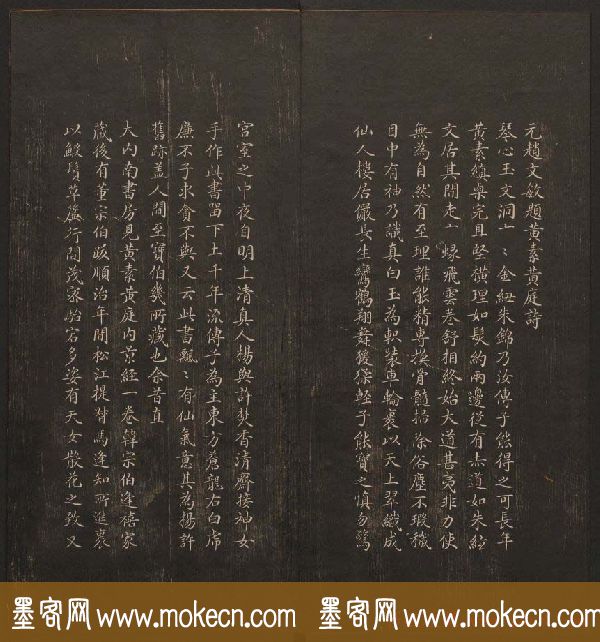 元趙文敏題黃素黃庭詩
琴心玉文洞一〻金紐朱錦乃汝傳子能得之可長年
黃素縝栗完且堅橫理如髮約兩邊從有赤道如朱絃
文居其間走一蜿飛雲卷舒相終始大道甚夷非力使
無為自然有至理誰能精專換骨髓招徐俗塵不瑕穢
目中有神乃識真白玉為軹裝車輪裹以天上翠織成
仙人樓居儼長生鸞鶴翔舞猨猱輕子能寶之慎勿驚
宮室之中夜自明上清真人楊與許焚香清齋接神女
手作此書留下土千年流傳子為主東方蒼龍右白虎
廉不予求貪不與又云此書飄〻有仙氣意其為楊許
舊跡蓋人間至寶伯幾所藏也余昔直
大內南書房見黃素黃庭內景經一卷韓宗伯逢禧家
藏後有董宗伯跋順治年間松江提督馬逢知所進裏
以鮫綃草廬行間茂密
多姿有天女散花之致又
墨客网 www.mokecn.com
墨客网 www.mokecn.com